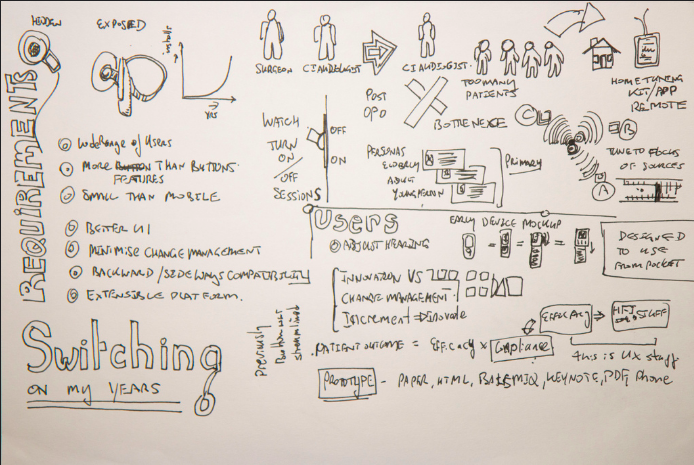 HIDDEN
EXPOSED
installs
YRS
REQUIREMENTS
WIDE RANGE of USERS
MORE THAN BUTTONS
FEATURES
SMALL THAN MOBILE
BETTER UI
MINIMISE CHANGE MANAGEMENT
BACKWARD/SIDEWAYS COMPATIBILITY
EXTENSIBLE PLATFORM.
Switching
ON MY YEARS
SURGEON
POST
OPD
TOO MANY
PATIENTS
HOME TUNING
KIT/APP
REMOTE
WATCH
TURN
ON
/
OFF
SESSIONS
OFF
ON
PERSONAS
ELDERLY
ADULT
YOUNG PERSON
PRIMARY
C
B
A
TUNE TO FOCUS
OF SOURCES
USERS
ADJUST HEARING
EARLY DEVICE MOCKUP
DESIGNED
TO USE
FROM POCKET
INNOVATION VS
CHANGE MANAGEMENT.
Increment → Innovate
Previously
streamlined
EFFICACY → HFI STUFF
this is UX stuff
.PATIENT OUTCOME = EFFICACY x COMPLIANCE
PROTOTYPE - PAPER, HTML, BALSAMIQ, KEYNOTE, PDF, Phone